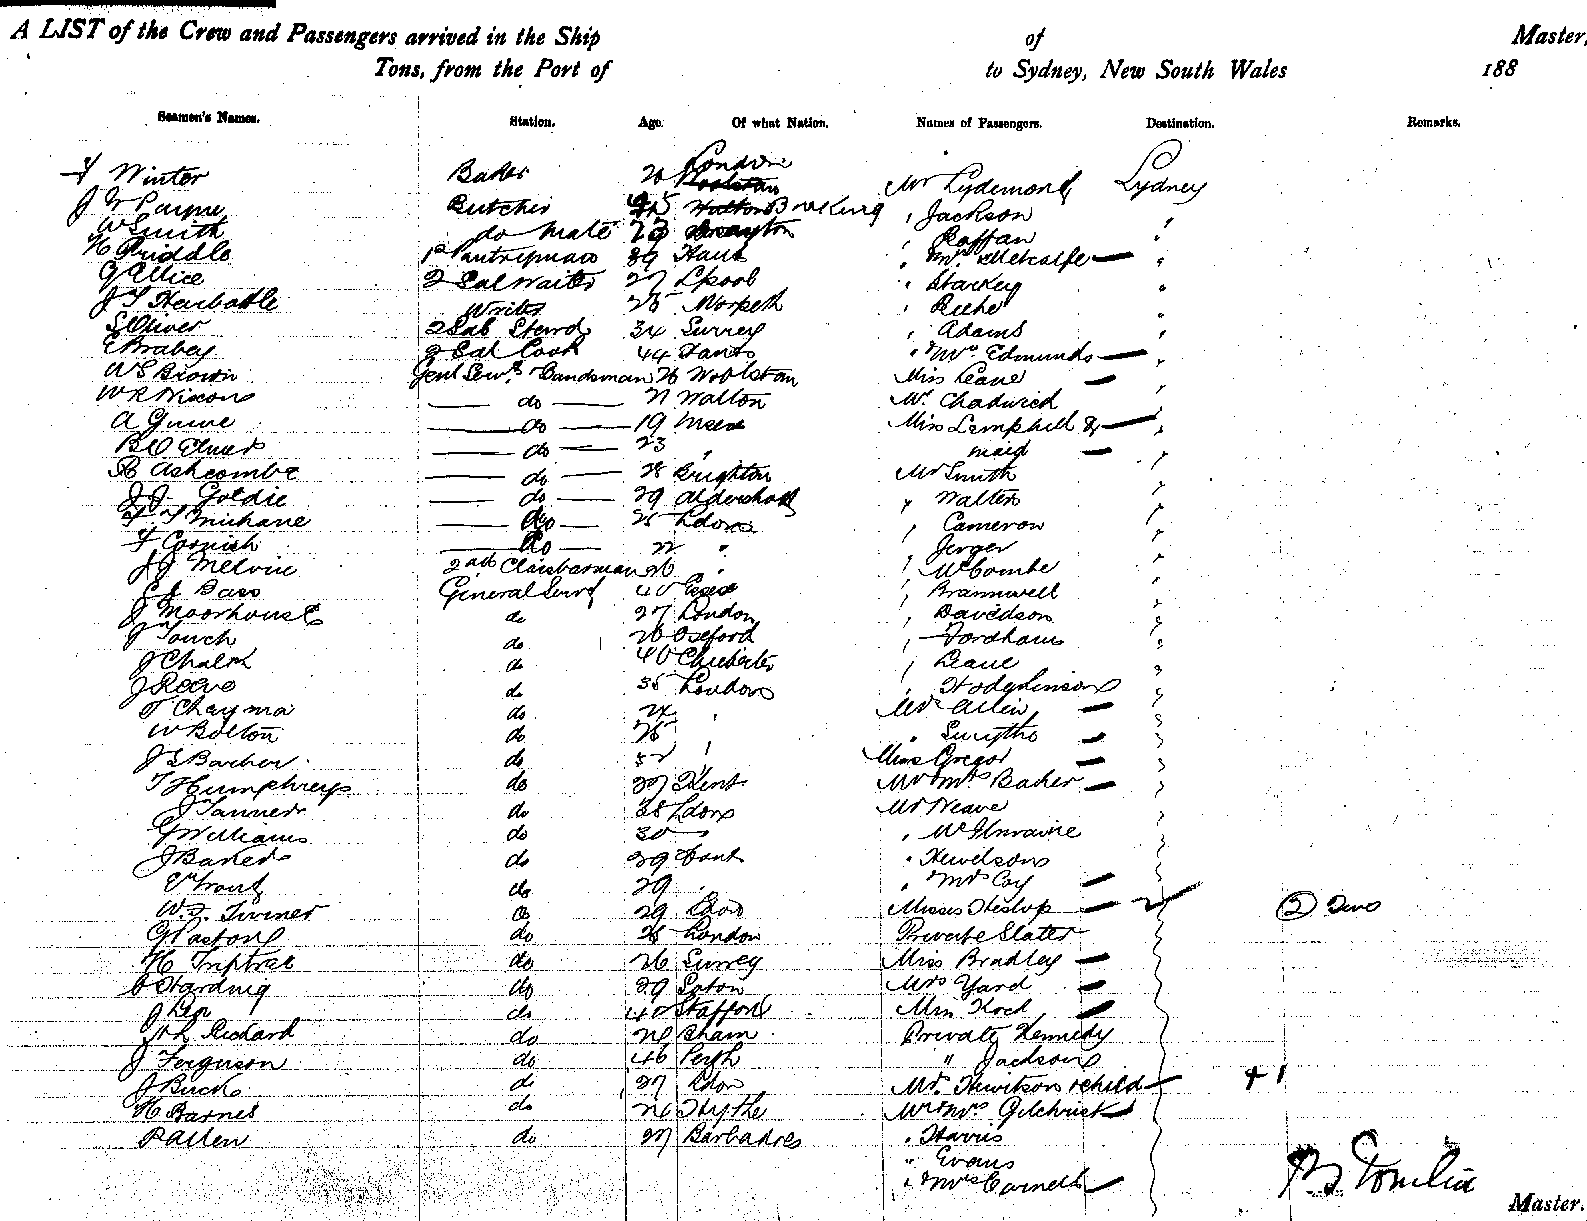 A LIST of the Crew and Passengers arrived in the Ship of Master,
Tons, from the Port of to Sydney, New South Wales 188
Seamen's Names. Station. Age. Of what Nation. Names of Passengers. Destination. Remarks.
Winter Baker 20 London Mr Sydney
J W Payne Butcher 45 Barking " Jackson "
W Smith do mate 23 " Raffan "
H Riddle Pantryman 39 Hants " Mrs Metcalfe — "
G Allice 2 Sal Waiter 27 Lpool " Starkey "
J T Harbottle Writer 25 Morpeth " Riche "
S Oliver 2 Sal Stewd 34 Surrey " Adams "
E Brabey 2 Sal Cook 44 Hants " " Mrs Edmunds — "
W S Brown Genl Servt Bandsman 26 Woolston Miss Leane — "
W R Nixon — do — 21 Walton Mr Chadwick "
A — do — 19 Miss Lamphill & — "
B O Elmer — do — 23 " maid — "
Ashcombe — do — 28 Brighton Mr Smith "
J J Goldie — do — 29 Aldershott " Walton "
— do — 25 Ldon " Cameron "
F Cornish — do — 22 " " Jerger "
J J Melvin 2nd 26 " " McCombe "
Bass General Servt 40 Essex " Brammwell "
J Moorhouse do 27 London " Davidson "
J Touch do 26 Oxford " Fordham "
J Chalk do 40 Chichester " Leane "
J Reeve do 35 London " Hodgkinson "
T do 24 " Mrs Allen — "
W Bolton do 25 " " Smythe — "
J S Barber do 52 " Miss Gregor — "
T Humphreys do 27 Kent Mr & Mrs Baker — "
J Tanner do 38 Ldon Mr Neave "
G Williams do 30 " "
J Baker do 29 " Hewitson
E Trout do 29 " " Mrs Coy —
W. J. Turner do 29 Ldon Misses Heslop — 2 (2) Two
G Paston do 28 London Private Slater
H do 26 Surrey Miss Bradley —
C Harding do 29 Luton Mrs Yard —
J do 40 Stafford Miss Koch —
Richard do 21 Bham Private Kennedy
J Ferguson do 46 Perth " Jackson
J Buck do 27 Ldon Mr. Hewitson & child — + 1
H Barnes do 26 Hythe Mr & Mrs Gilchrist —
P Allen do 27 Barbadoes " Harris
" Evans
" " Mrs Carnell —
Tomlin
Master.